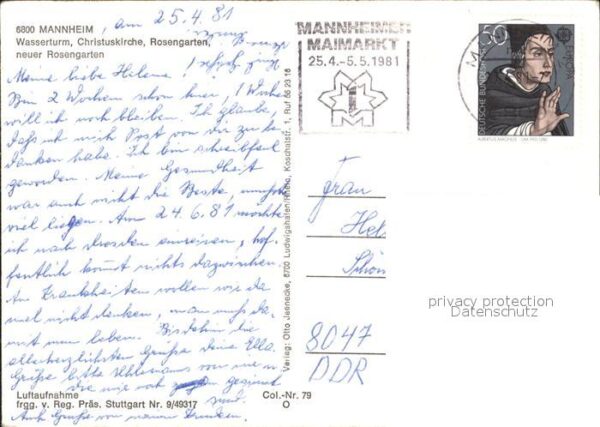 6800 MANNHEIM, am 25.4.81
Wasserturm, Christuskirche, Rosengarten,
neuer Rosengarten
Meine liebe Helena!
Bin 2 Wochen schon hier, 1 Woche
will ich noch bleiben. Ich glaube,
daß ich mich Post von dir zu be
danken habe. Ich bin schreibfaul
geworden. Meine Gesundheit
war auch nicht die Beste, mußte
viel liegen. Am 24.6.81 möchte
ich nach Dresden einreisen, hof,
fentlich kommt nichts dazwischen.
An Krankheiten wollen wir da
viel nicht denken, man muß da,
mit nun leben. Bis dahin die
allerherzlichsten Grüße Deine Ella.
Grüße bitte von mir
die mir noch gesinnt
sind.
Luftaufnahme
frgg. v. Reg. Präs. Stuttgart Nr. 9/49317
Col.-Nr. 79
O
Auch Grüße von
Verlag: Otto Jaenecke, 6700 Ludwigshafen/Rhein, Koschatstr. 1, Ruf 56 23 16
MANNHEIMER
MAIMARKT
25.4.-5.5.1981
M
50
DEUTSCHE BUNDESPOST
EUROPA
CEPT
Frau
Hel
Schön
8047
DDR
privacy protection
Datenschutz